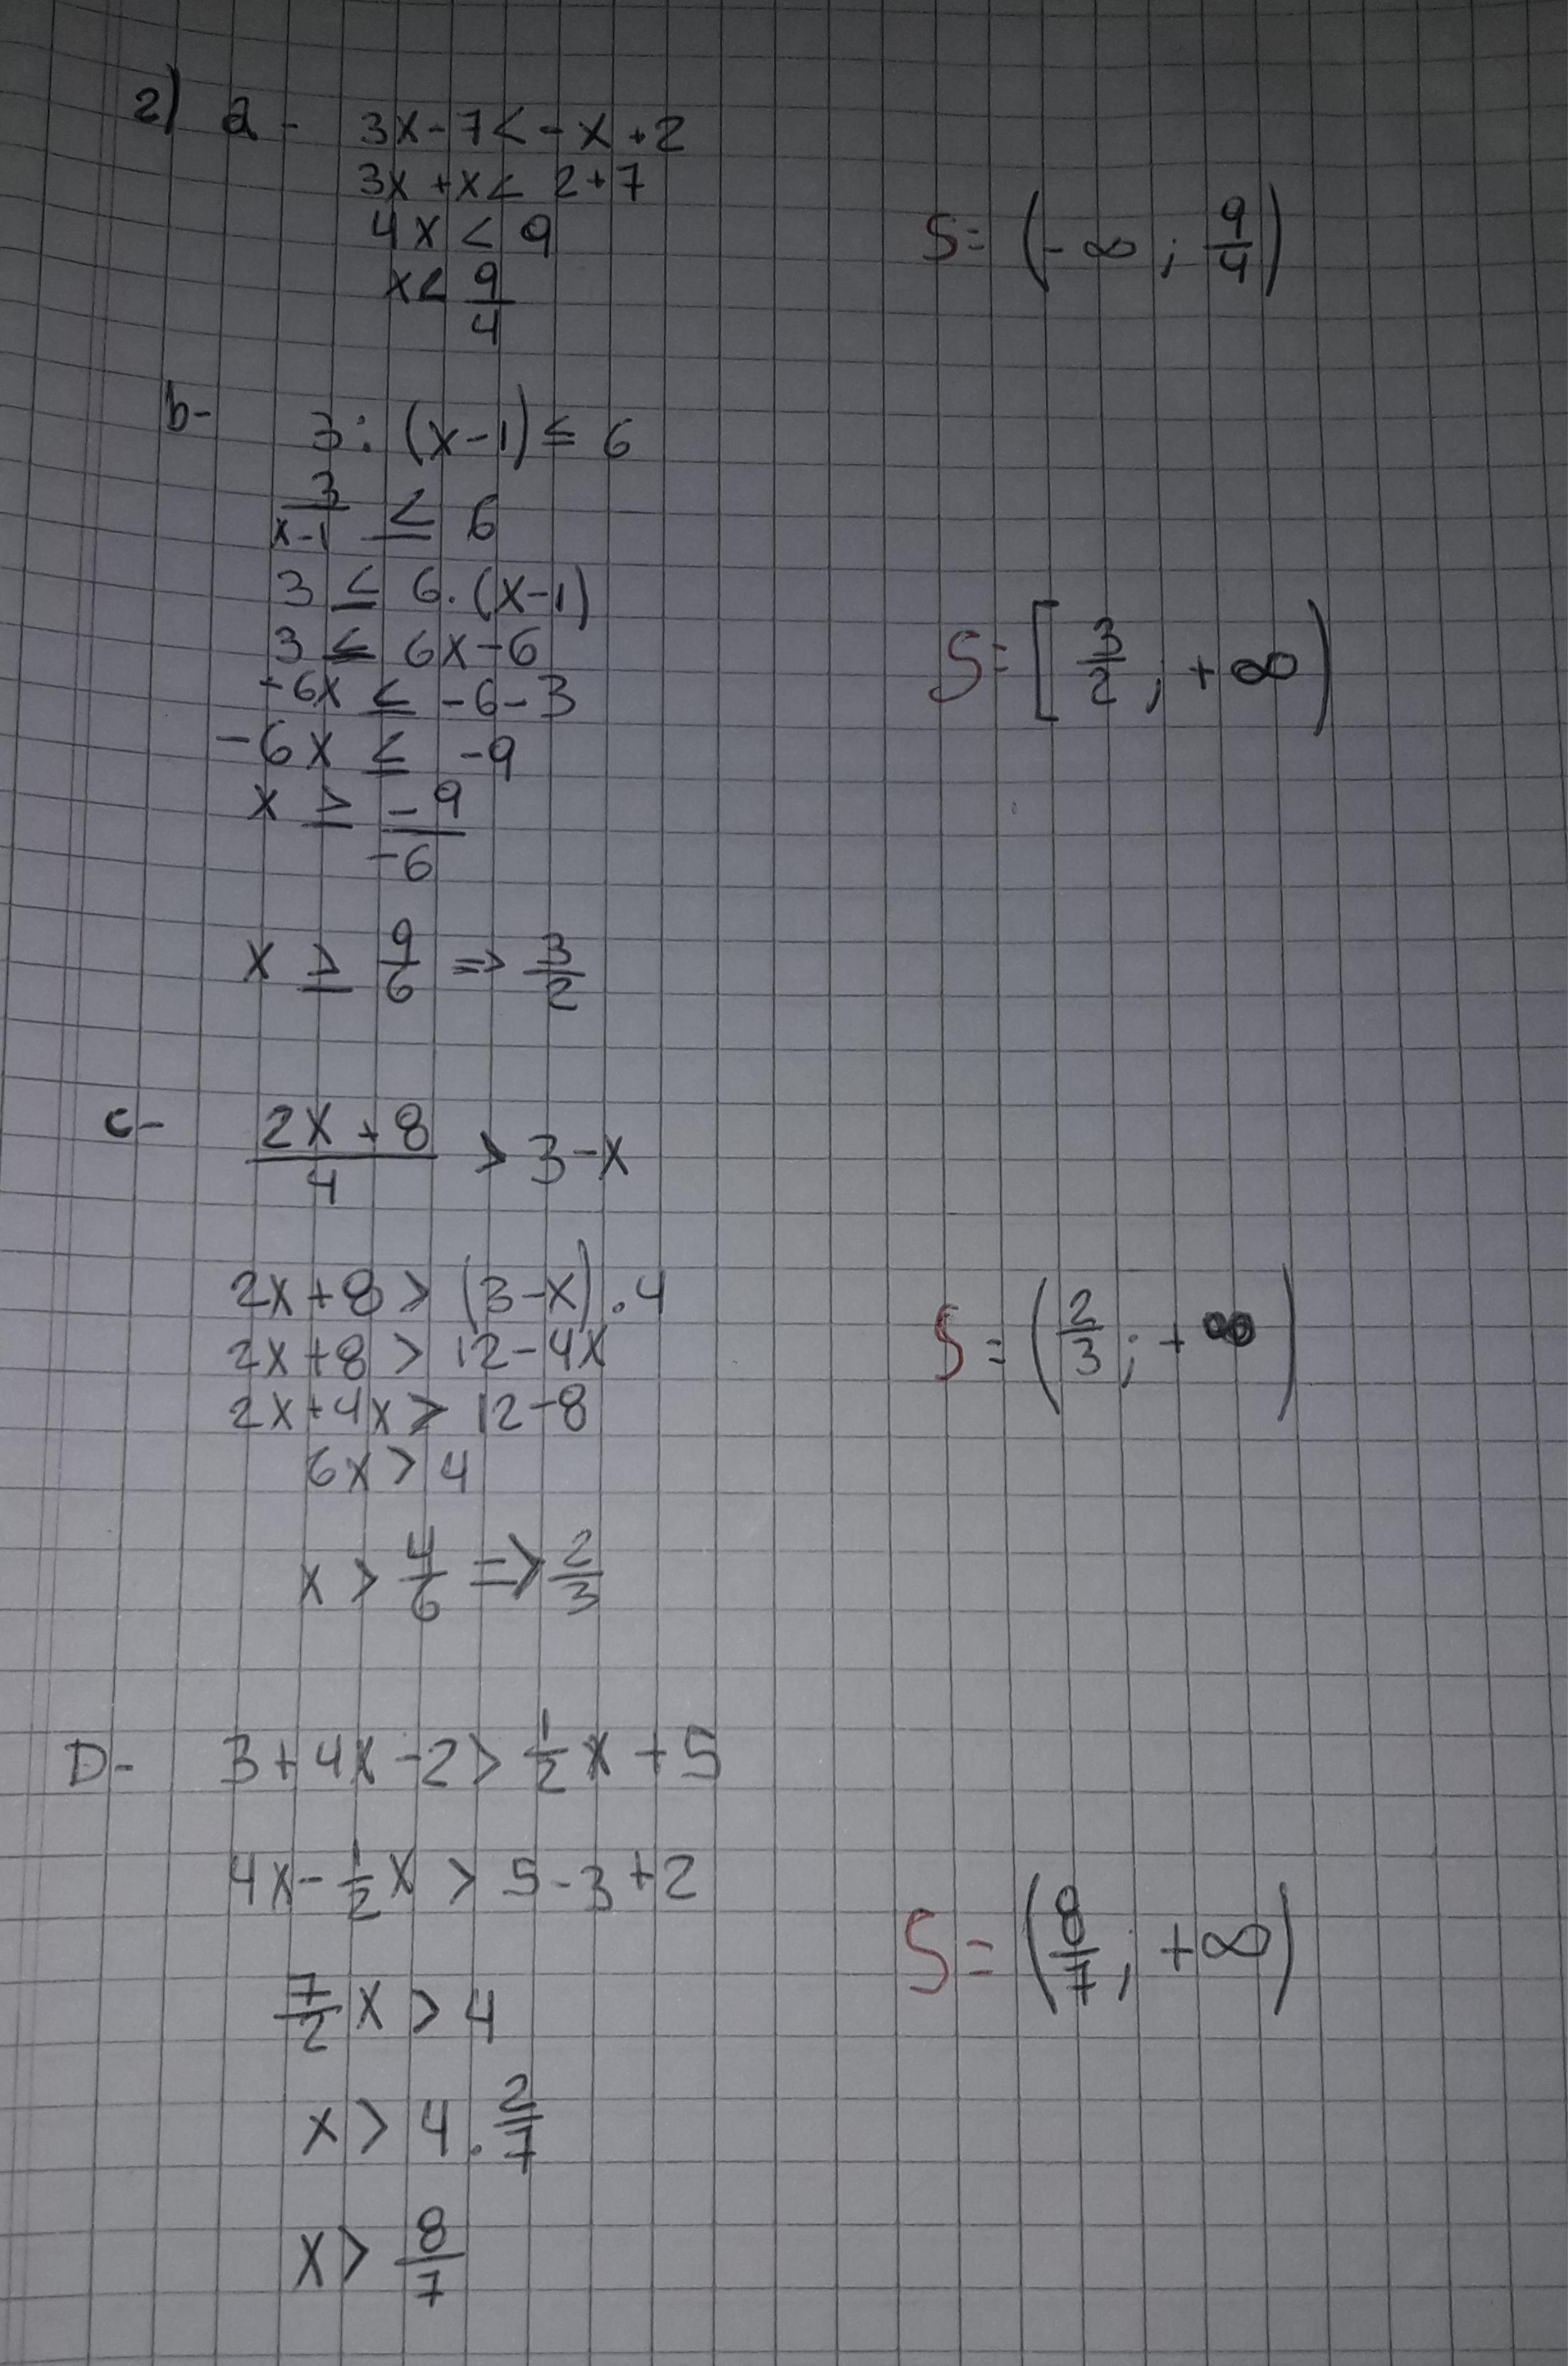 2) a- 3x-7<-x+2
3x+x< 2+7
4x < 9
x< 9/4
S= (-∞; 9/4)
b- 3:(x-1) ≤ 6
3/x-1 ≤ 6
3 ≤ 6.(x-1)
3 ≤ 6x-6
-6x ≤ -6-3
-6x ≤ -9
x ≥ -9/-6
x ≥ 9/6 => 3/2
S= [3/2; +∞)
c- 2x+8/4 > 3-x
2x+8> (3-x).4
2x+8 > 12-4x
2x+4x> 12-8
6x>4
x > 4/6 => 2/3
S= (2/3; +∞)
D- 3+4x-2> 1/2x+5
4x-1/2x > 5-3+2
7/2x>4
x> 4.2/7
x> 8/7
S= (8/7; +∞)